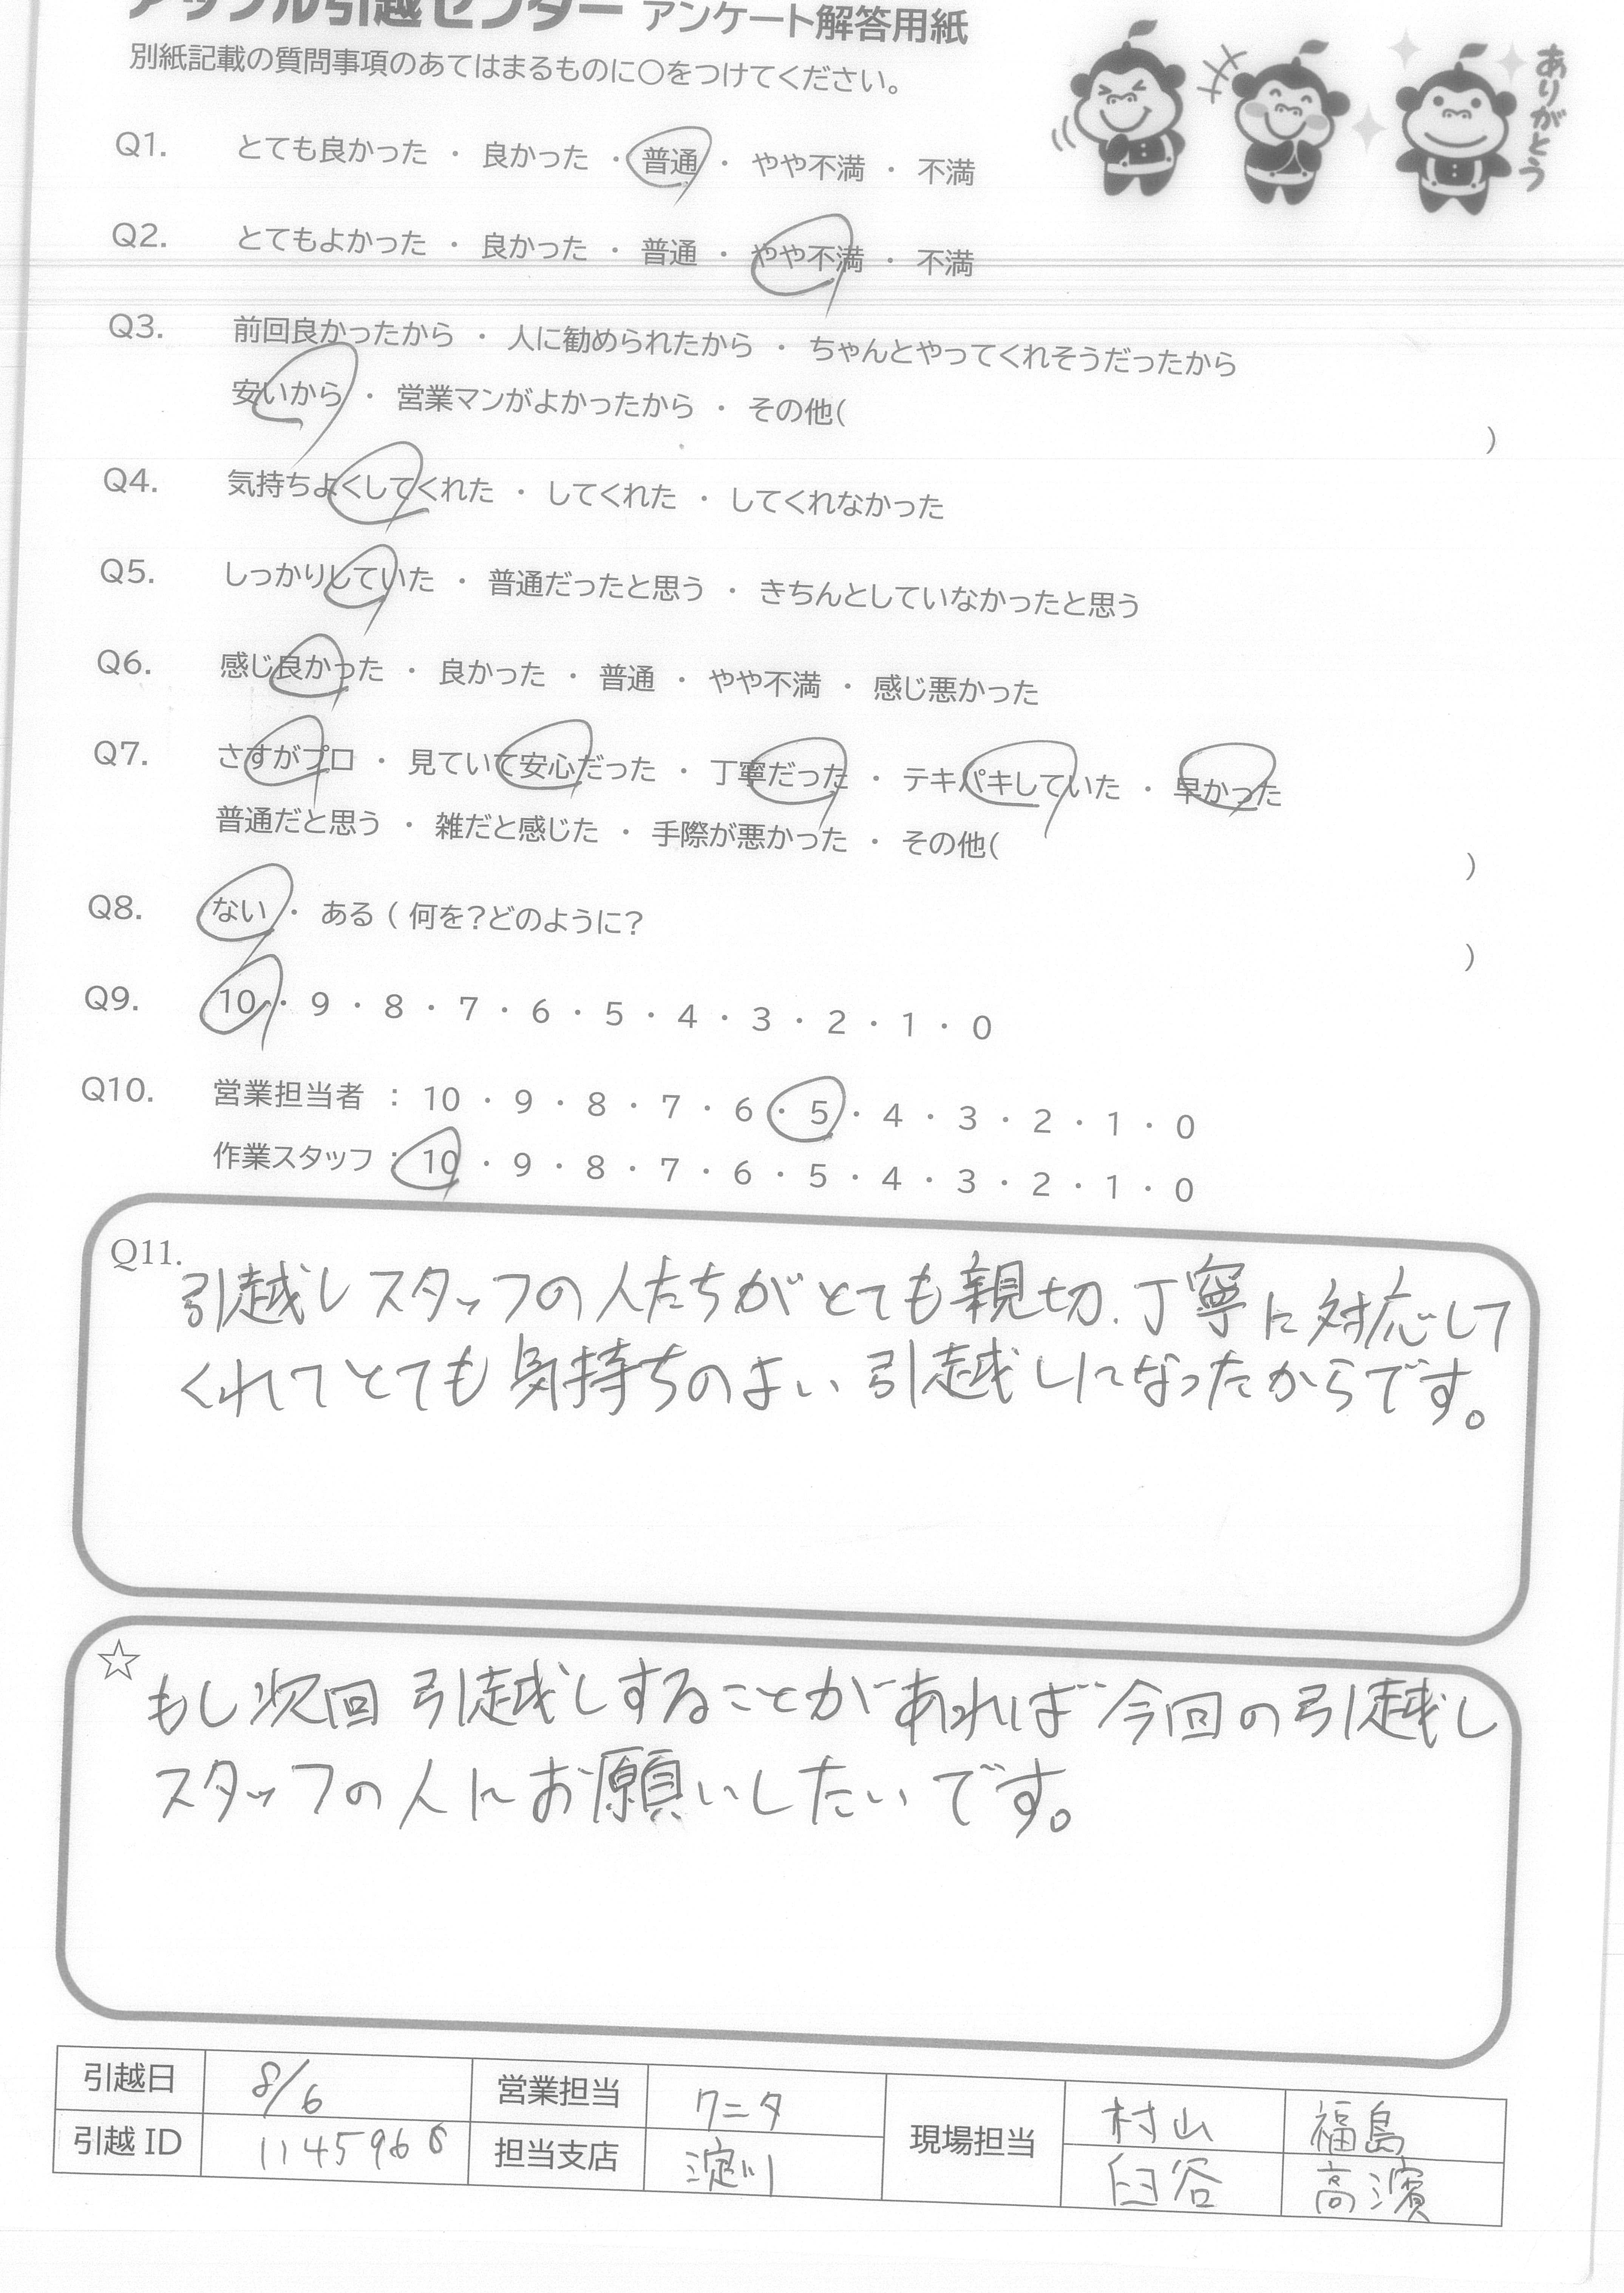 アップル引越センター アンケート解答用紙
別紙記載の質問事項のあてはまるものに〇をつけてください。
ありがとう
Q1. とても良かった ・ 良かった ・ 普通 ・ やや不満 ・ 不満
Q2. とてもよかった ・ 良かった ・ 普通 ・ やや不満 ・ 不満
Q3. 前回良かったから ・ 人に勧められたから ・ ちゃんとやってくれそうだったから
安いから ・ 営業マンがよかったから ・ その他( )
Q4. 気持ちよくしてくれた ・ してくれた ・ してくれなかった
Q5. しっかりしていた ・ 普通だったと思う ・ きちんとしていなかったと思う
Q6. 感じ良かった ・ 良かった ・ 普通 ・ やや不満 ・ 感じ悪かった
Q7. さすがプロ ・ 見ていて安心だった ・ 丁寧だった ・ テキパキしていた ・ 早かった
普通だと思う ・ 雑だと感じた ・ 手際が悪かった ・ その他( )
Q8. ない ・ ある ( 何を?どのように? )
Q9. 10 ・ 9 ・ 8 ・ 7 ・ 6 ・ 5 ・ 4 ・ 3 ・ 2 ・ 1 ・ 0
Q10. 営業担当者 : 10 ・ 9 ・ 8 ・ 7 ・ 6 ・ 5 ・ 4 ・ 3 ・ 2 ・ 1 ・ 0
作業スタッフ : 10 ・ 9 ・ 8 ・ 7 ・ 6 ・ 5 ・ 4 ・ 3 ・ 2 ・ 1 ・ 0
Q11. 引越しスタッフの人たちがとても親切、丁寧に対応して
くれてとても気持ちのよい引越しになったからです。
☆ もし次回引越しすることがあれば今回の引越し
スタッフの人にお願いしたいです。
引越日 8/6 営業担当 ワニタ 現場担当 村山 福島
引越 ID 1145968 担当支店 淀川 臼谷 高濱